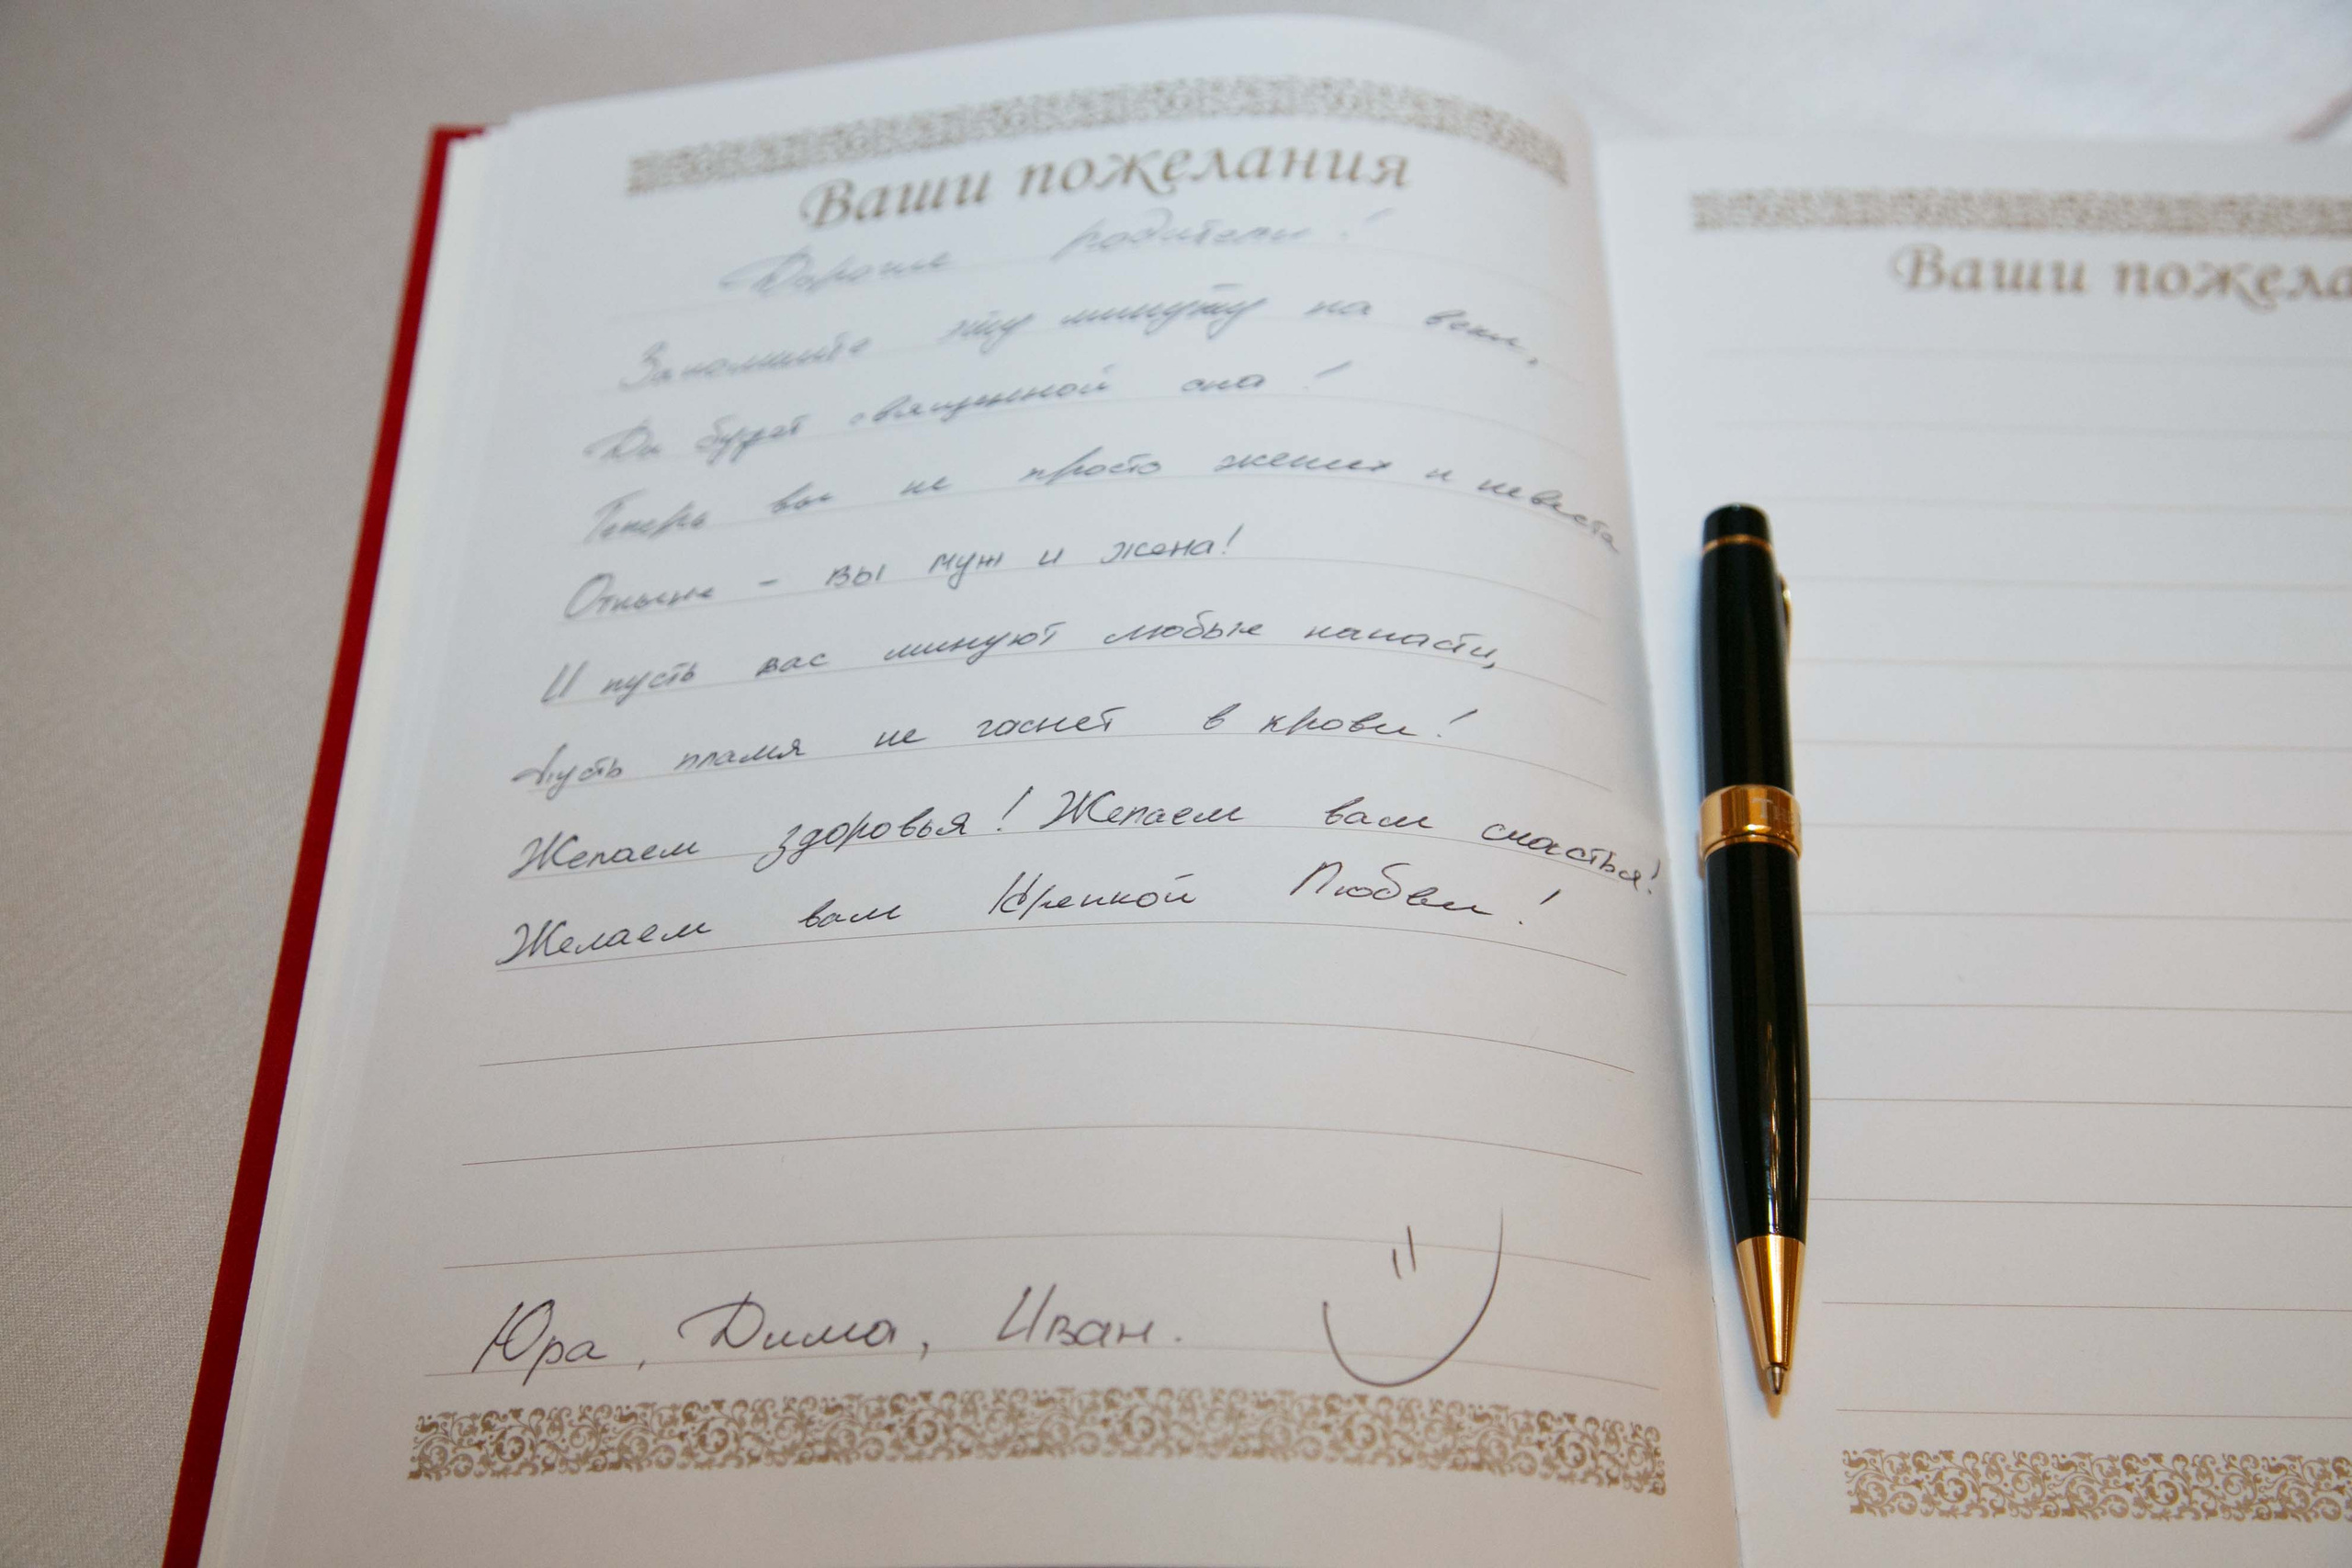 Ваши пожелания
Дорогие родители!
Запомните эту минуту на веки,
Да будет священной она!
Теперь вы не просто жених и невеста
Отныне - вы муж и жена!
И пусть вас минуют любые напасти,
Пусть пламя не гаснет в крови!
Желаем здоровья! Желаем вам счастья!
Желаем вам Крепкой Любви!
Юра, Дима, Иван.
Ваши пожела